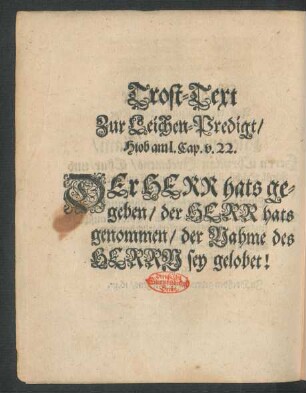 Trost-Text
Zur Leichen-Predigt/
Hiob am I. Cap. v. 22.
DEr HERR hats ge-
geben/ der HERR hats
genommen/ der Nahme des
HERRN sey gelobet!